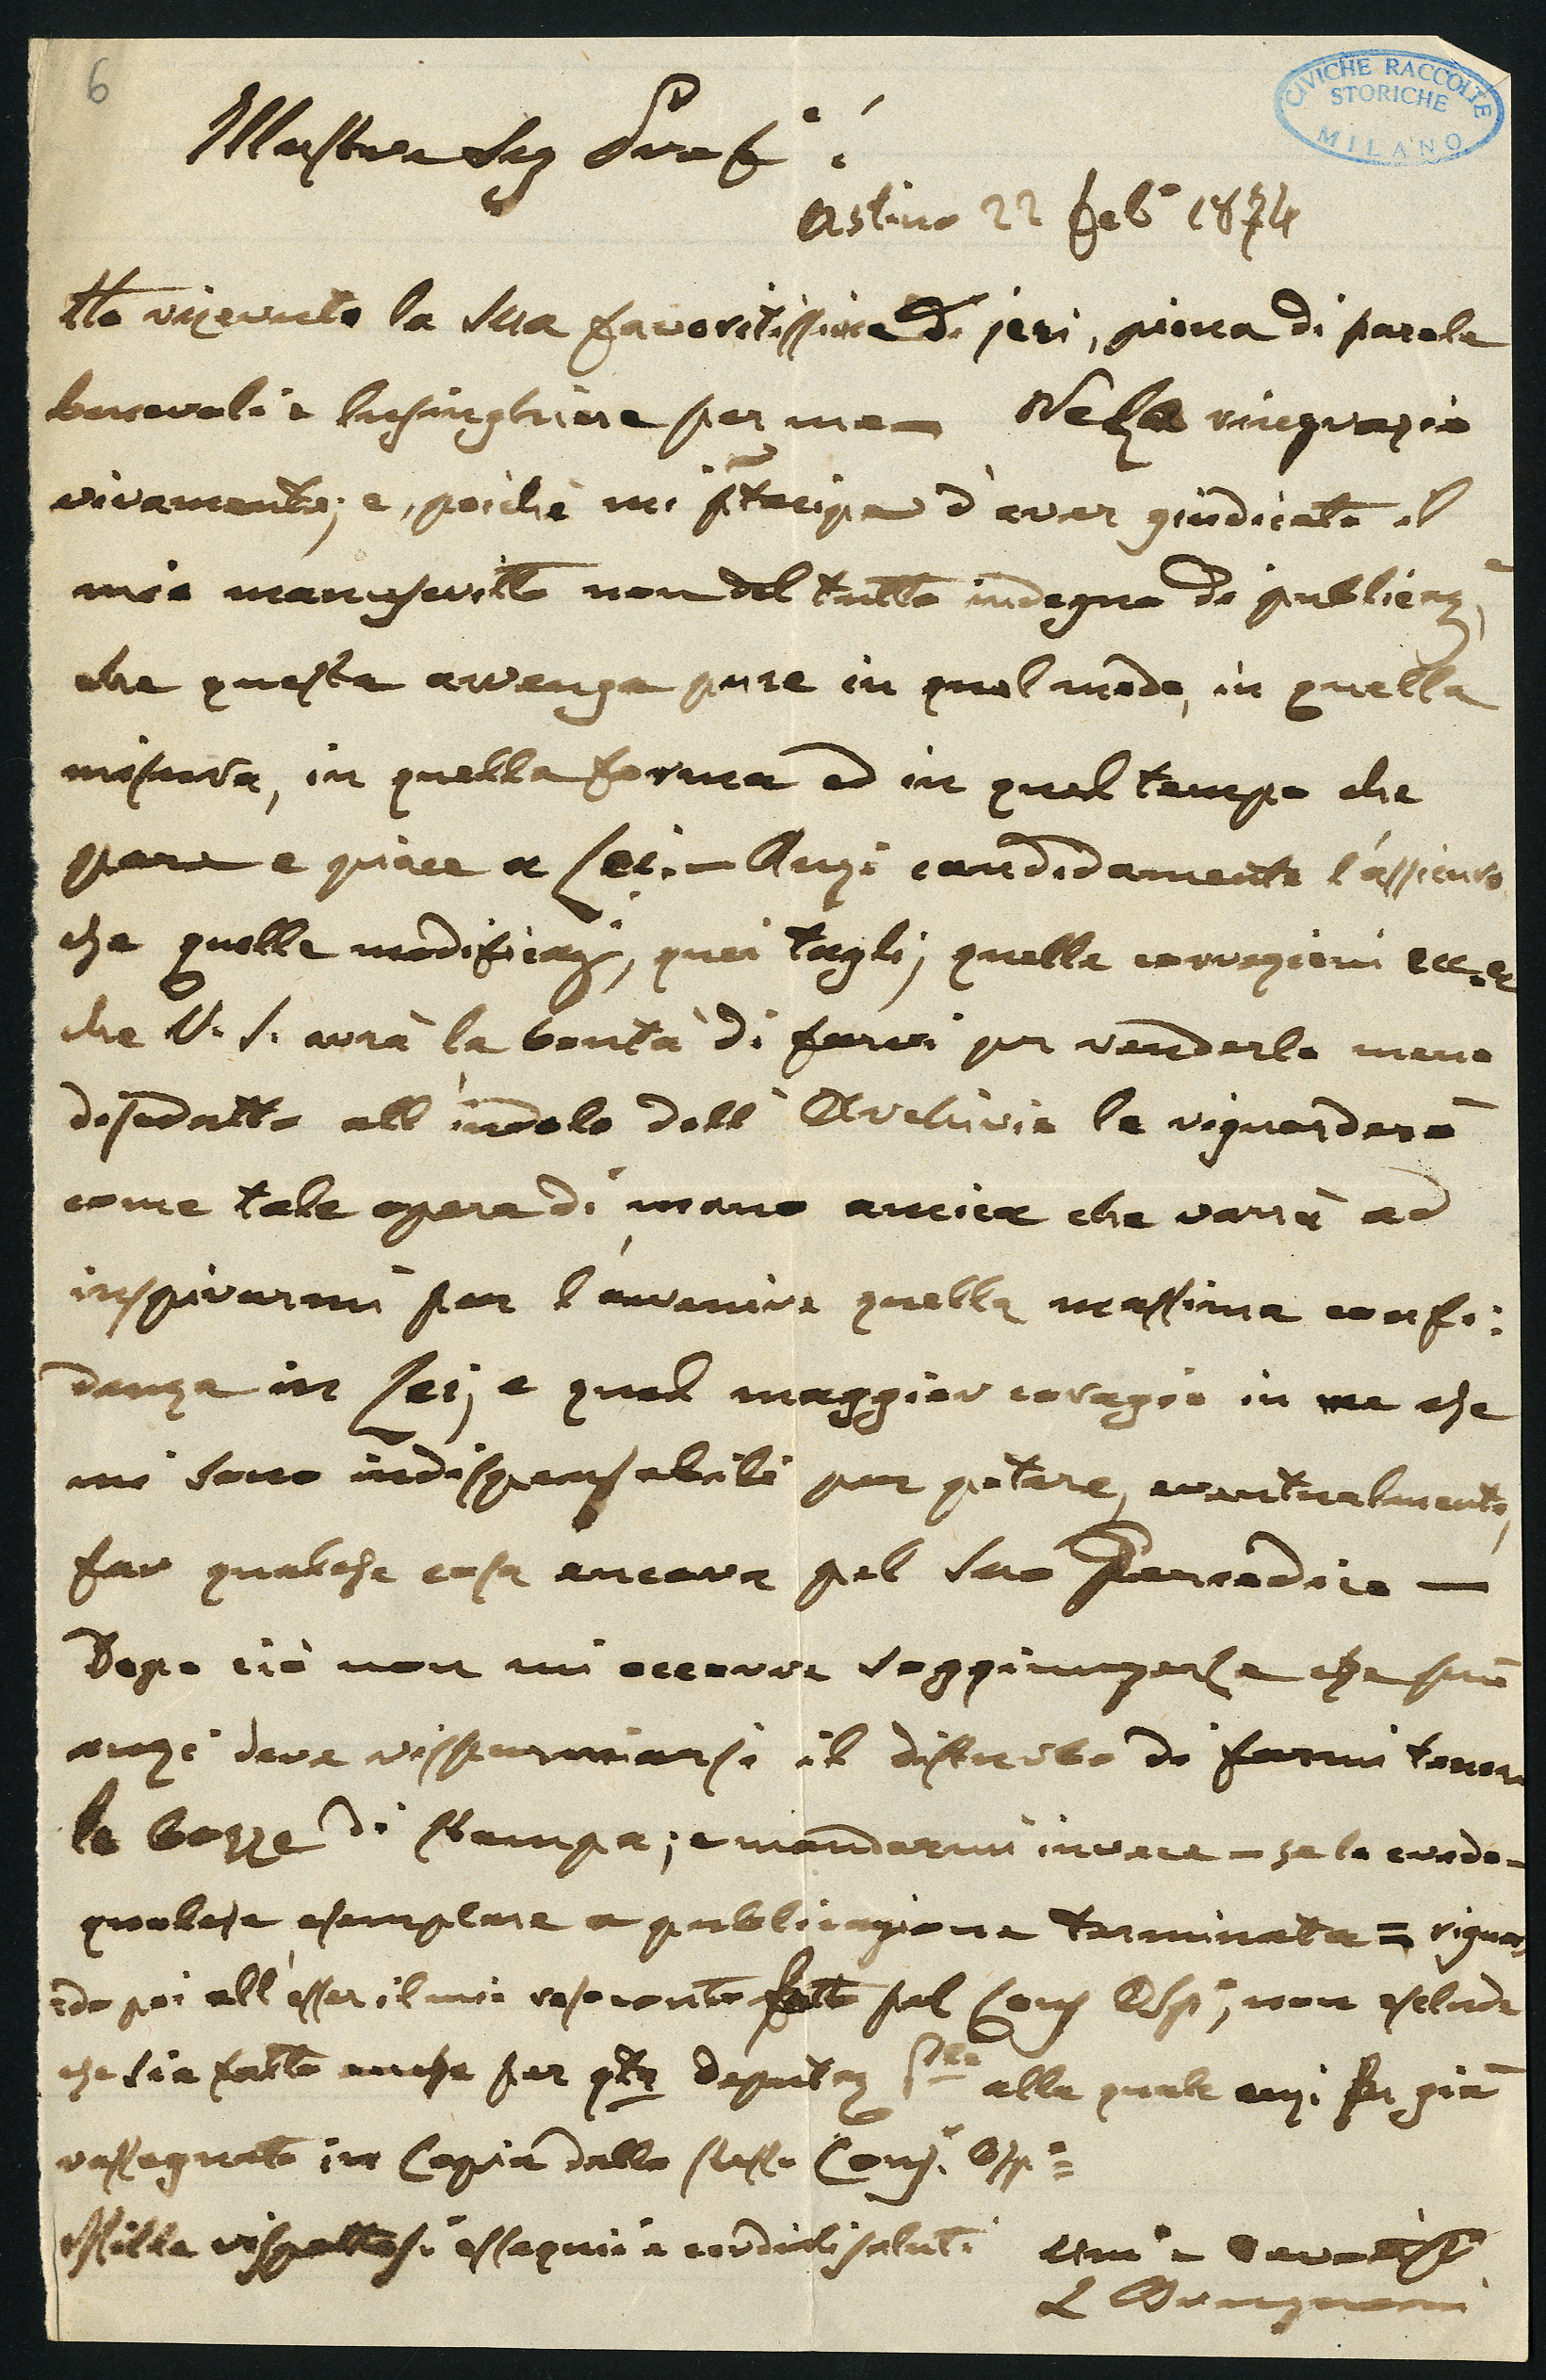 6
CIVICHE RACCOLTE
STORICHE
MILANO
Illustre Sig Prof.e
Astino 22 febo 1874
Ho ricevuto la Sua favoritissima di jeri, piena di parole
benevoli e lusinghiere per me — Nela ringrazio
vivamente; e, poichè mi ptecipa d'aver giudicato il
mio manuscritto non del tutto indegno di publicaze,
che questa avvenga pure in quel modo, in quella
misura, in quella forma ed in quel tempo che
pare e piace a Lei. — Anzi candidamente l'assicuro
che quelle modificazi, quei tagli, quelle correzioni ecc. ec
che V. S. avrà la bontà di farvi per renderlo meno
disadatto all'indole dell'Archivio le riguarderò
come tale opera di mano amica che varrà ad
inspirarmi per l'avvenire quella massima confi:
danza in Lei, e quel maggior coragio in me che
mi sono indispensabili per potere, eventualmente,
far qualche cosa ancora pel Suo Periodico —
Dopo ciò non mi occorre soggiungerle che può
anzi deve risparmiarsi il disturbo di farmi tenere
le bozze di stampa; e mandarmi invece — se lo crede —
qualche esemplare a pubblicazione terminata = riguar
=do poi all'esser il mio resoconto fatto pel Cons Osp.o, non esclude
che sia fatto anche per qta Deputaz alla quale anzi fu già
rassegnato in Copia dallo stesso Cons. Osp.o =
Mille rispettosi essequii e cordiali saluti
L Brugnoni